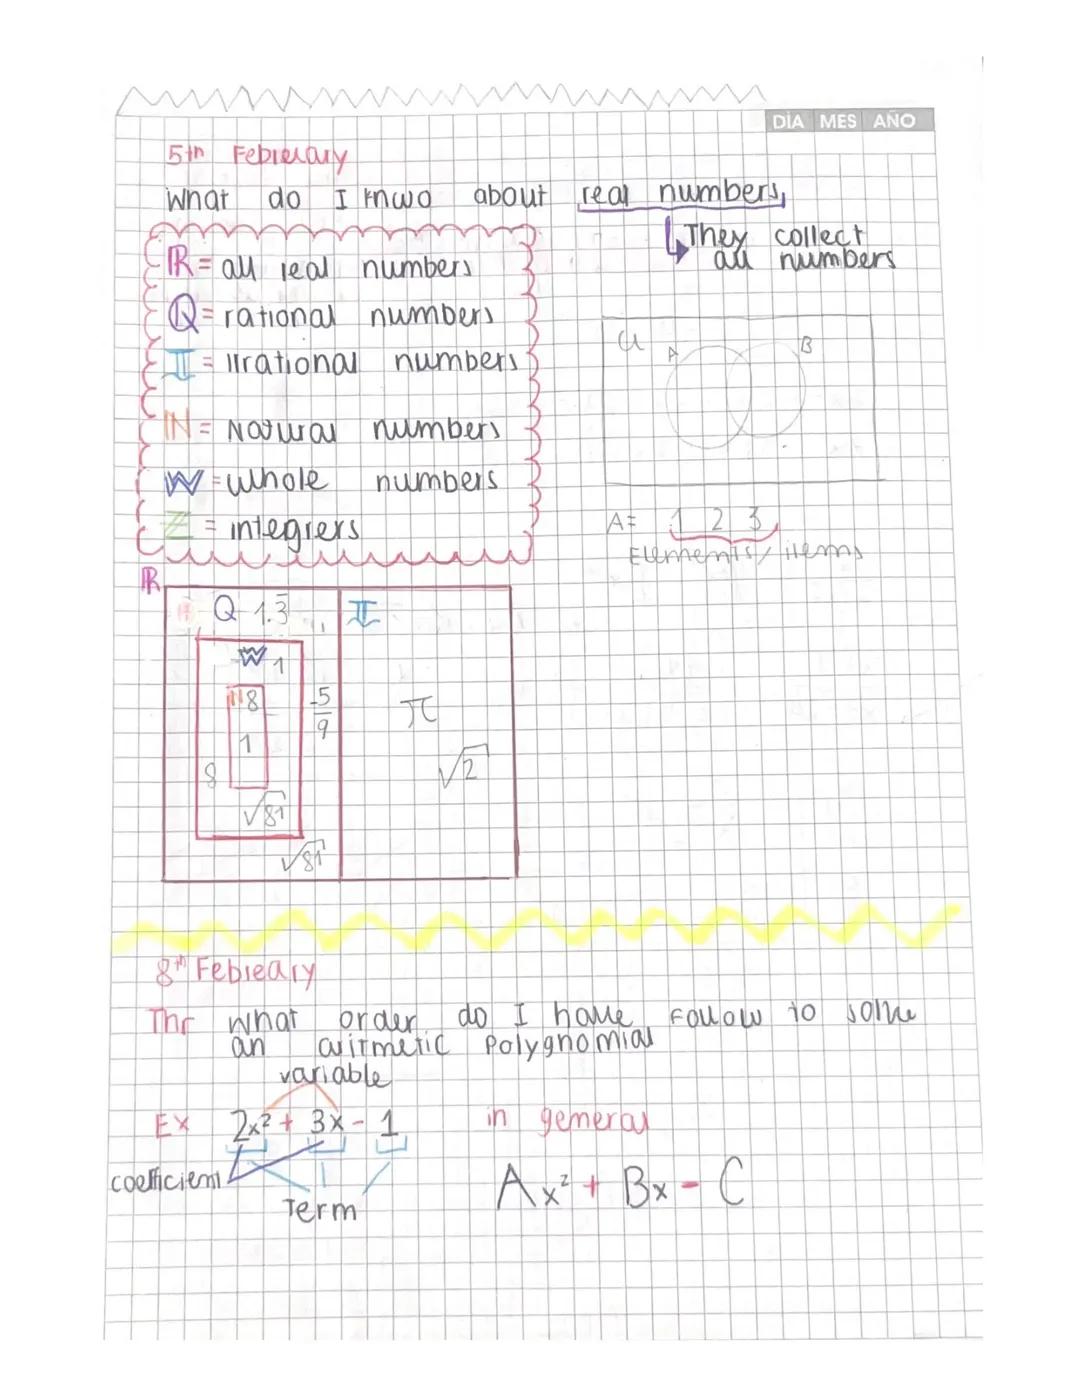 DÍA MES AÑO
5th Febreuary
What do I knwo about real numbers,
They collect
all numbers
ℝ = all real numbers
Q = rational numbers
𝕀 = Irrational numbers
ℕ = Natural numbers
W = whole numbers
ℤ = integrers
U A B
A= 1 2 3
Elements/ items
ℝ
Q 1.3̅ 𝕀
W 1
N 8
-5/9
π
1
8
√2
√81
√81
8th Febreary
Thr what order do I have Follow to solve
an aritmetic Polygnomial
variable
Ex 2x² + 3x - 1 in gemeral
coefficient
Term
Ax² + Bx - C